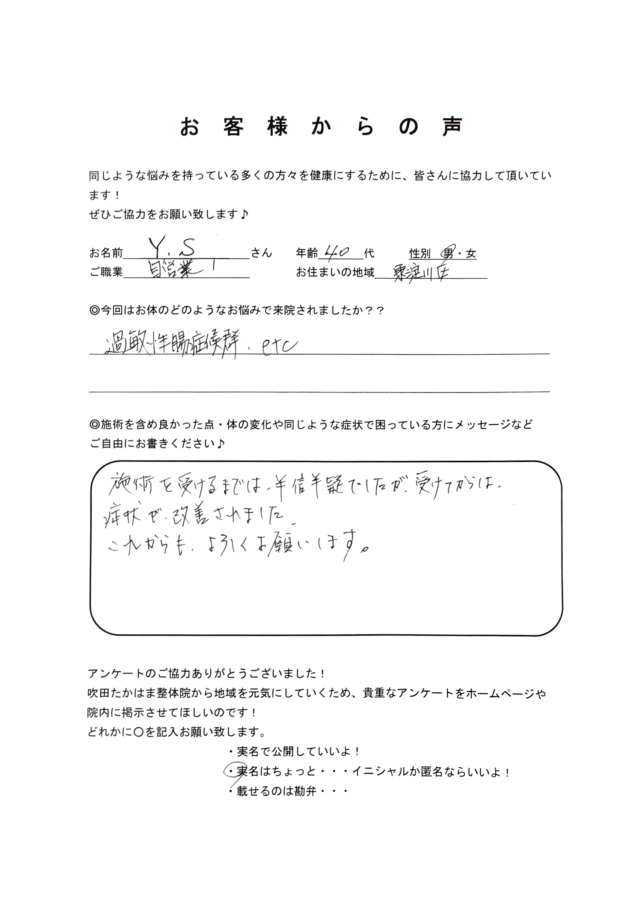 お客様からの声
同じような悩みを持っている多くの方々を健康にするために、皆さんに協力して頂いてい
ます！
ぜひご協力をお願い致します♪
お名前 Y.S さん 年齢 40 代 性別 男・女
ご職業 自営業 お住まいの地域 東淀川区
◎今回はお体のどのようなお悩みで来院されましたか？？
過敏性腸症候群. etc
◎施術を含め良かった点・体の変化や同じような症状で困っている方にメッセージなど
ご自由にお書きください♪
施術を受けるまでは、半信半疑でしたが、受けてからは、
症状が、改善されました。
これからも、よろしくお願いします。
アンケートのご協力ありがとうございました！
吹田たかはま整体院から地域を元気にしていくため、貴重なアンケートをホームページや
院内に掲示させてほしいのです！
どれかに〇を記入お願い致します。
・実名で公開していいよ！
・実名はちょっと・・・イニシャルか匿名ならいいよ！
・載せるのは勘弁・・・